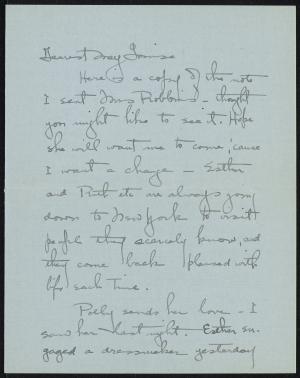 Dearest May Louise
Here is a copy of the note
I sent Mrs Robbins – thought
you might like to see it. Hope
she will want me to come, cause
I want a change – Esther
and Ruth etc are always going
down to New York to visit
people they scarcely know, and
they come back pleased with
life each time.
Polly sends her love – I
saw her last night. Esther en-
gaged a dressmaker yesterday